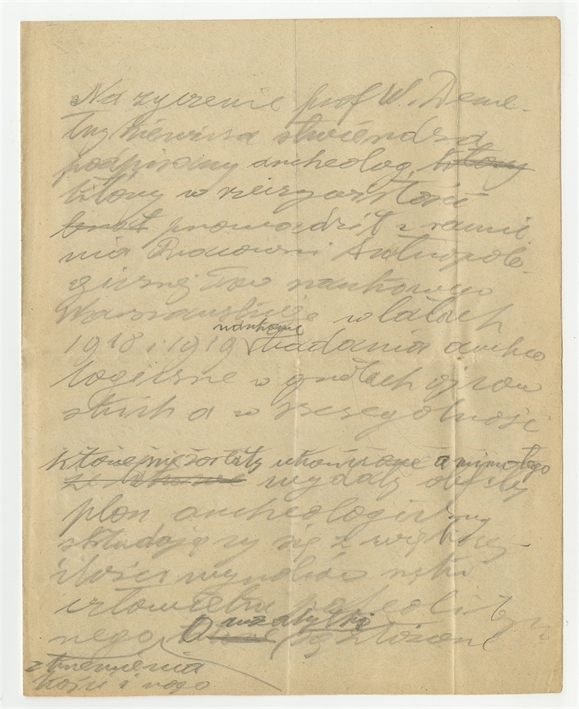 Na życzenie prof W. Deme-
trykiewicza stwierdza
podpisany archeolog, który
który w
brał prowadził z ramie
nia Pracowni Antropolo
gicznej Tow naukowego
Warszawskiego w latach
1918 i 1919 naukowe badania archeo
logiczne w grotach ojcow
skich a w szczególności
które nie zostały ukończone a mimo tego
wydały obfity
plon archeologiczny
składający się z większej
ilości wyrobów ręki
człowieka paleolitycz
nego O są złożone
z krzemienia
kości i rogu